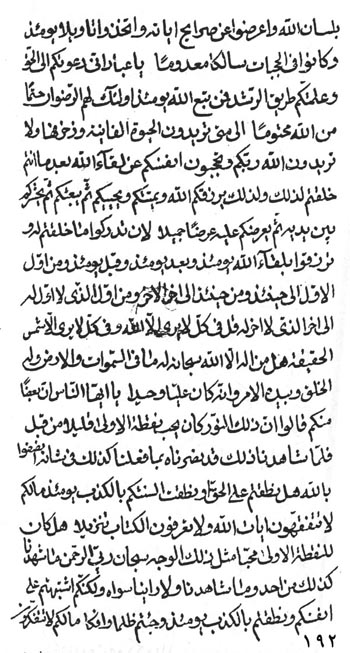 بلسان الله واعرضوا عن صرايح اياته واتخذوا ناويلا يومئذ
وكانوا فى الحجبات سالكا معدوما يا عباد اتى دعوتكم الى الحق
وعلمتكم طريق الرشد فمن تبع الله يومئذ اولئك لهم الرضوان حتما
من الله محتوما الى متى تريدون الحيوة الفانية وزخرفها ولا
تريدون الله ربكم وتحجبون انفسكم عن لقاء الله بعد ما انتم
خلقتم لذلك ولذلك يرزقكم الله ويميتكم ويحييكم ثم يبعثكم ثم يحشركم
بين يديه ثم يعرضكم عليه عرضا جميلا لان تدركوا ما خلقتم له و
ترزقوا بلقاء الله يومئذ وبعد يومئذ وقبل يومئذ ومن اول
الاول الى حينئذ ومن حينئذ الى اخر الاخر ومن اول الذى لا اول له
الى اخر الذى لا اخر له قل فى كل لا يرى الا الله وفى كل لا يرى الا شمس
الحقيقة هل من اله الا الله سبحانه له ما فى السموات والارض وله
الخلق وبيده الامر وانه كان عليا وحيدا يا ايها الناس ان بعضا
منكم قالوا ان ذلك النور كان يحب نقطة الاولى قليلا من قبل
فلما شاهدنا ذلك قد بصرناه بما فعلنا كذلك فى شانه
بالله هل نطقتم على الحق او نطقت السنتكم بالكذب يومئذ مالكم
لا تتفقهون ايات الله ولا تعرفون الكتاب تنزيلا هل كان
للنقطة الاولى محبا مثل ذلك الوجه سبحان ربى الرحمن ما شهدنا
كذلك من احد وما شاهدنا ولا راينا سواه ولكنكم اشتبهتم على
انفسكم ونطقتم بالكذب يومئذ وجئتم ظلما وافكا مالكم لا تتفكرون
١٩٢